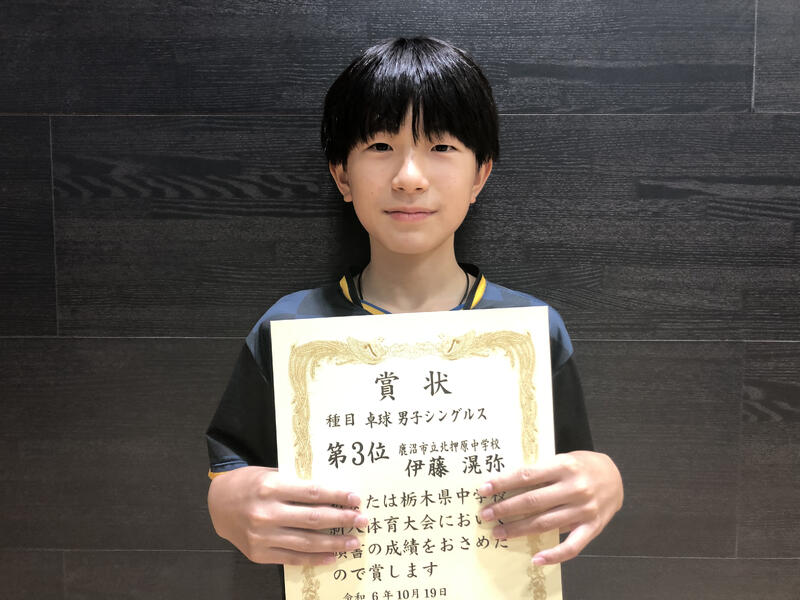 賞状
種目 卓球 男子シングルス
第3位 鹿沼市立北押原中学校
伊藤 滉弥
たは栃木県中学校
新人体育大会におい
頭書の成績をおさめた
ので賞します
令和 6年10月19日